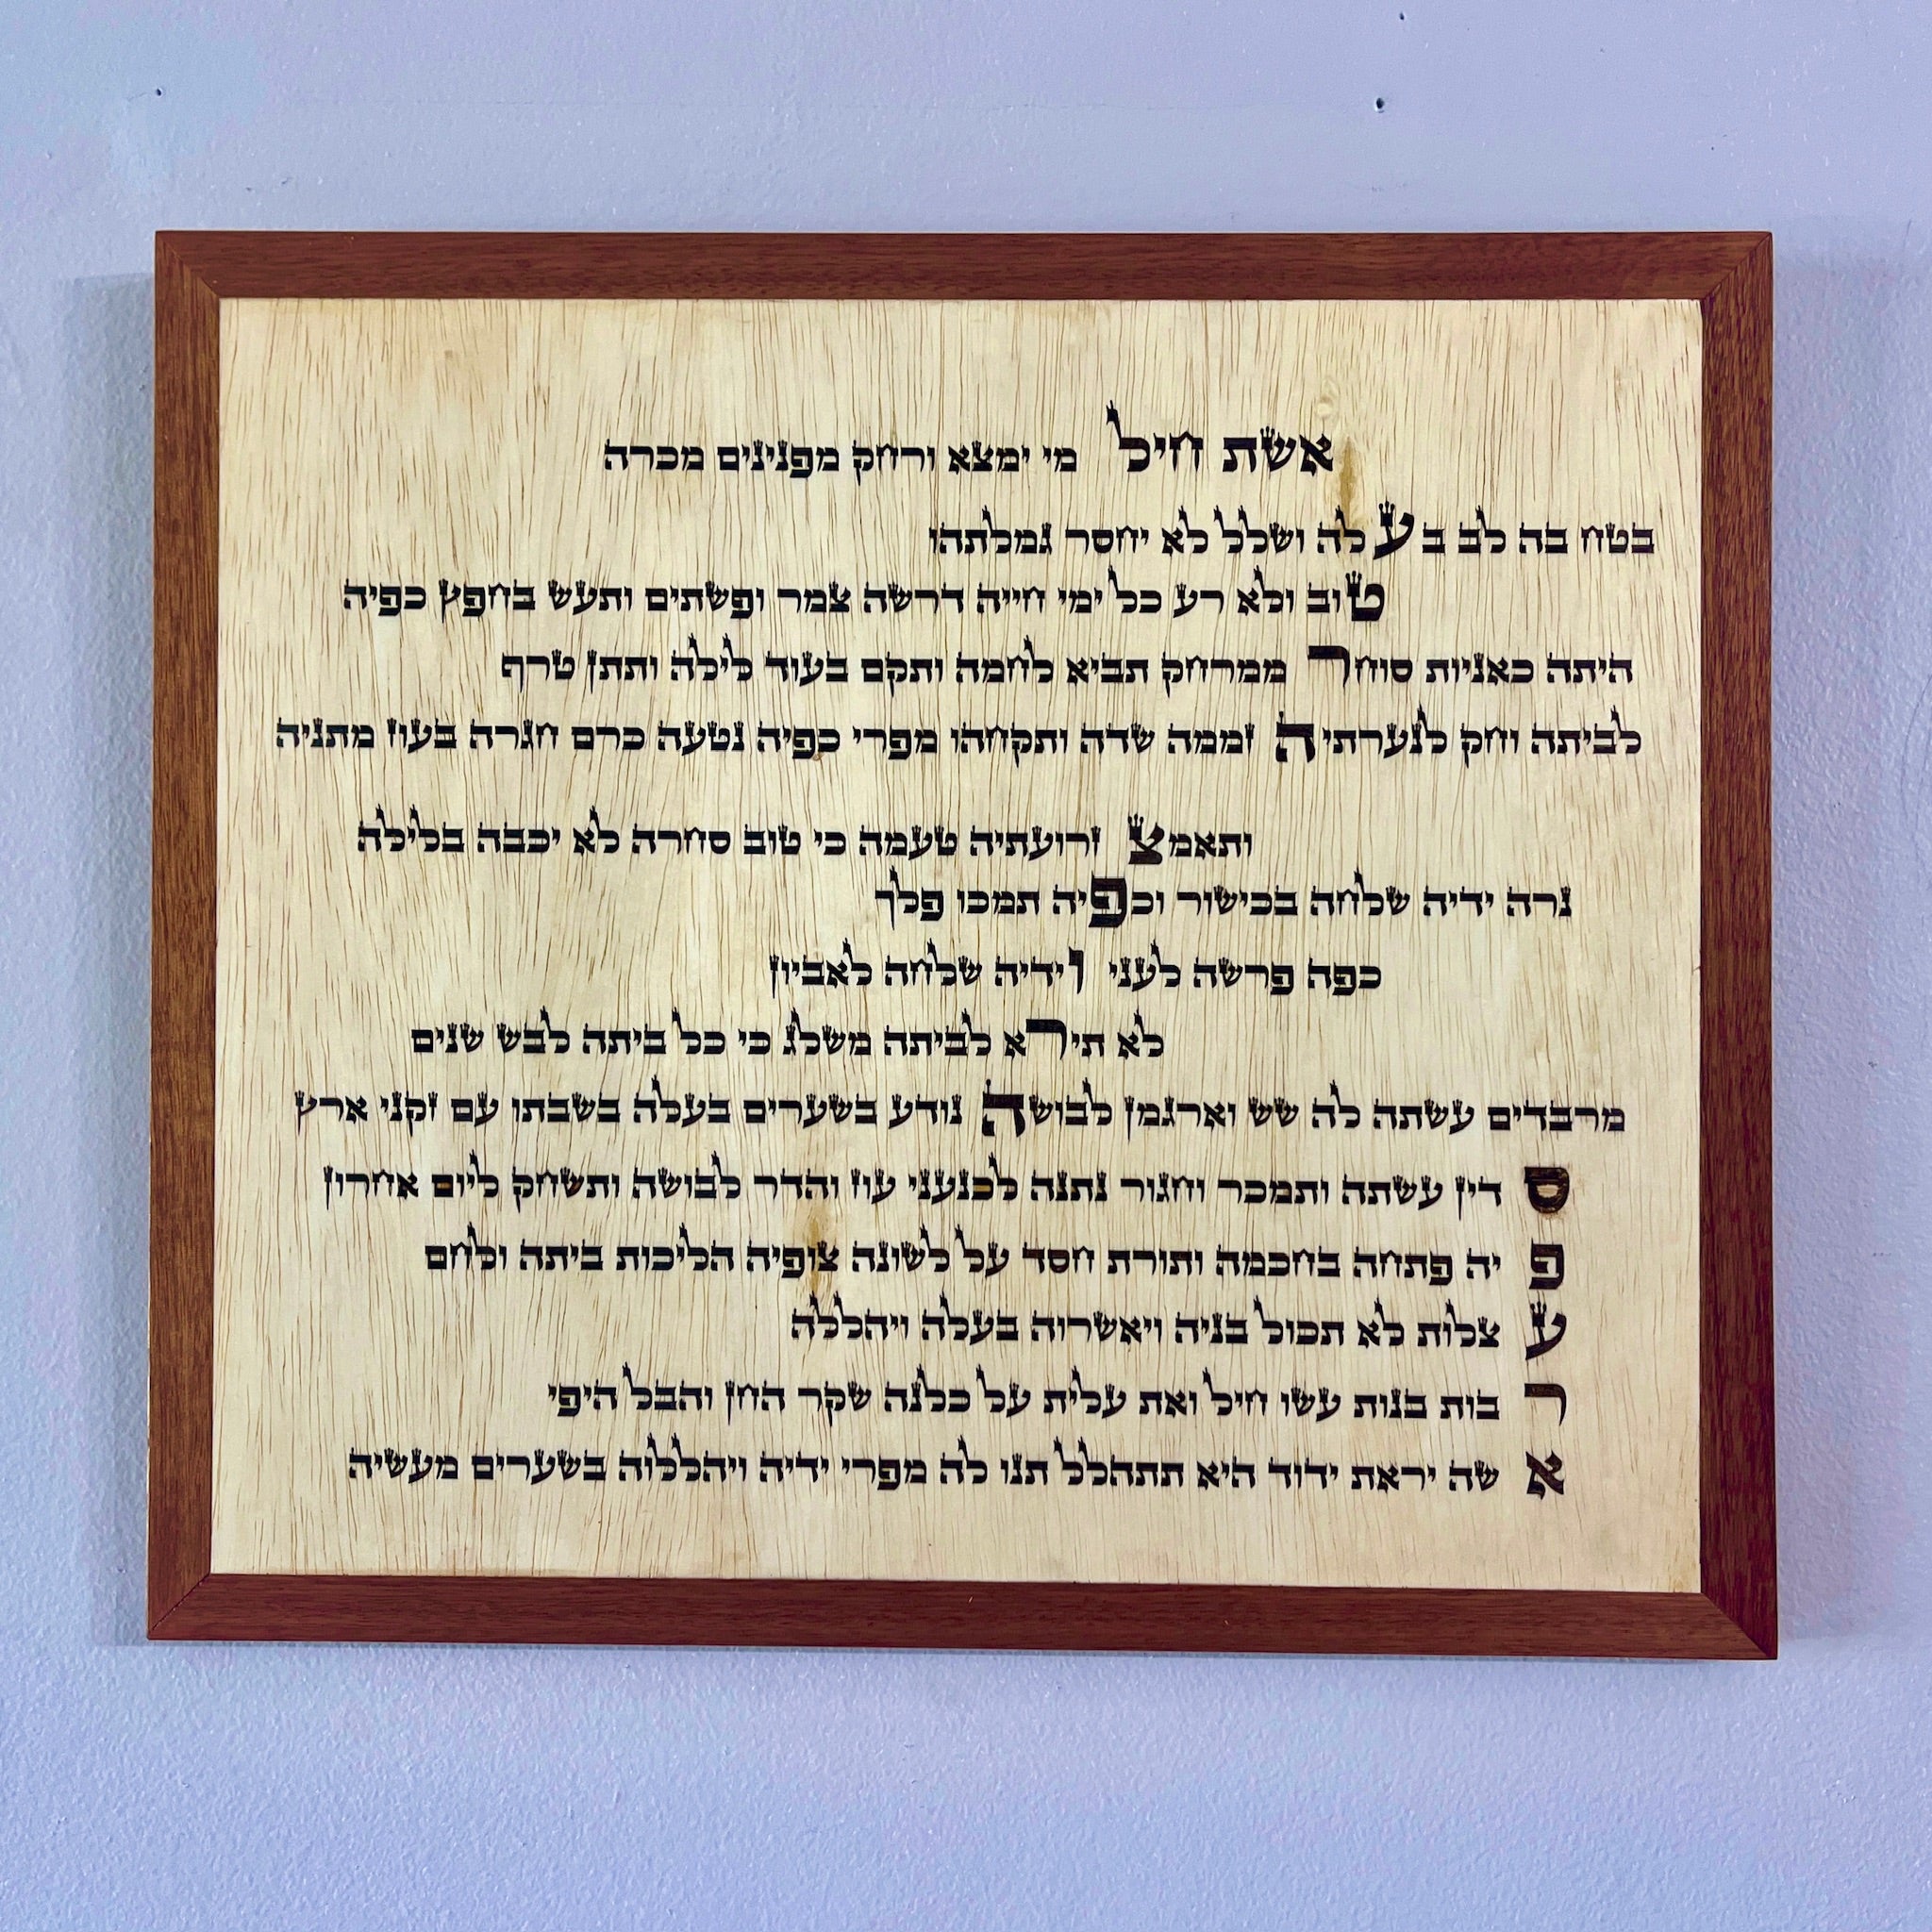 אשת חיל מי ימצא ורחק מפנינים מכרה
בטח בה לב בעלה ושלל לא יחסר גמלתהו
טוב ולא רע כל ימי חייה דרשה צמר ופשתים ותעש בחפץ כפיה
היתה כאניות סוחר ממרחק תביא לחמה ותקם בעוד לילה ותתן טרף
לביתה וחק לנערתיה זממה שדה ותקחהו מפרי כפיה נטעה כרם חגרה בעוז מתניה
ותאמצ זרועתיה טעמה כי טוב סחרה לא יכבה בלילה
נרה ידיה שלחה בכישור וכפיה תמכו פלך
כפה פרשה לעני וידיה שלחה לאביון
לא תירא לביתה משלג כי כל ביתה לבש שנים
מרבדים עשתה לה שש וארגמן לבושה נודע בשערים בעלה בשבתו עם זקני ארץ
סדין עשתה ותמכר וחגור נתנה לכנעני עוז והדר לבושה ותשחק ליום אחרון
פיה פתחה בחכמה ותורת חסד על לשונה צופיה הליכות ביתה ולחם
עצלות לא תכול בניה ויאשרוה בעלה ויהללה
רבות בנות עשו חיל ואת עלית על כלנה שקר החן והבל היפי
אשה יראת ידוד היא תתהלל תנו לה מפרי ידיה ויהללוה בשערים מעשיה